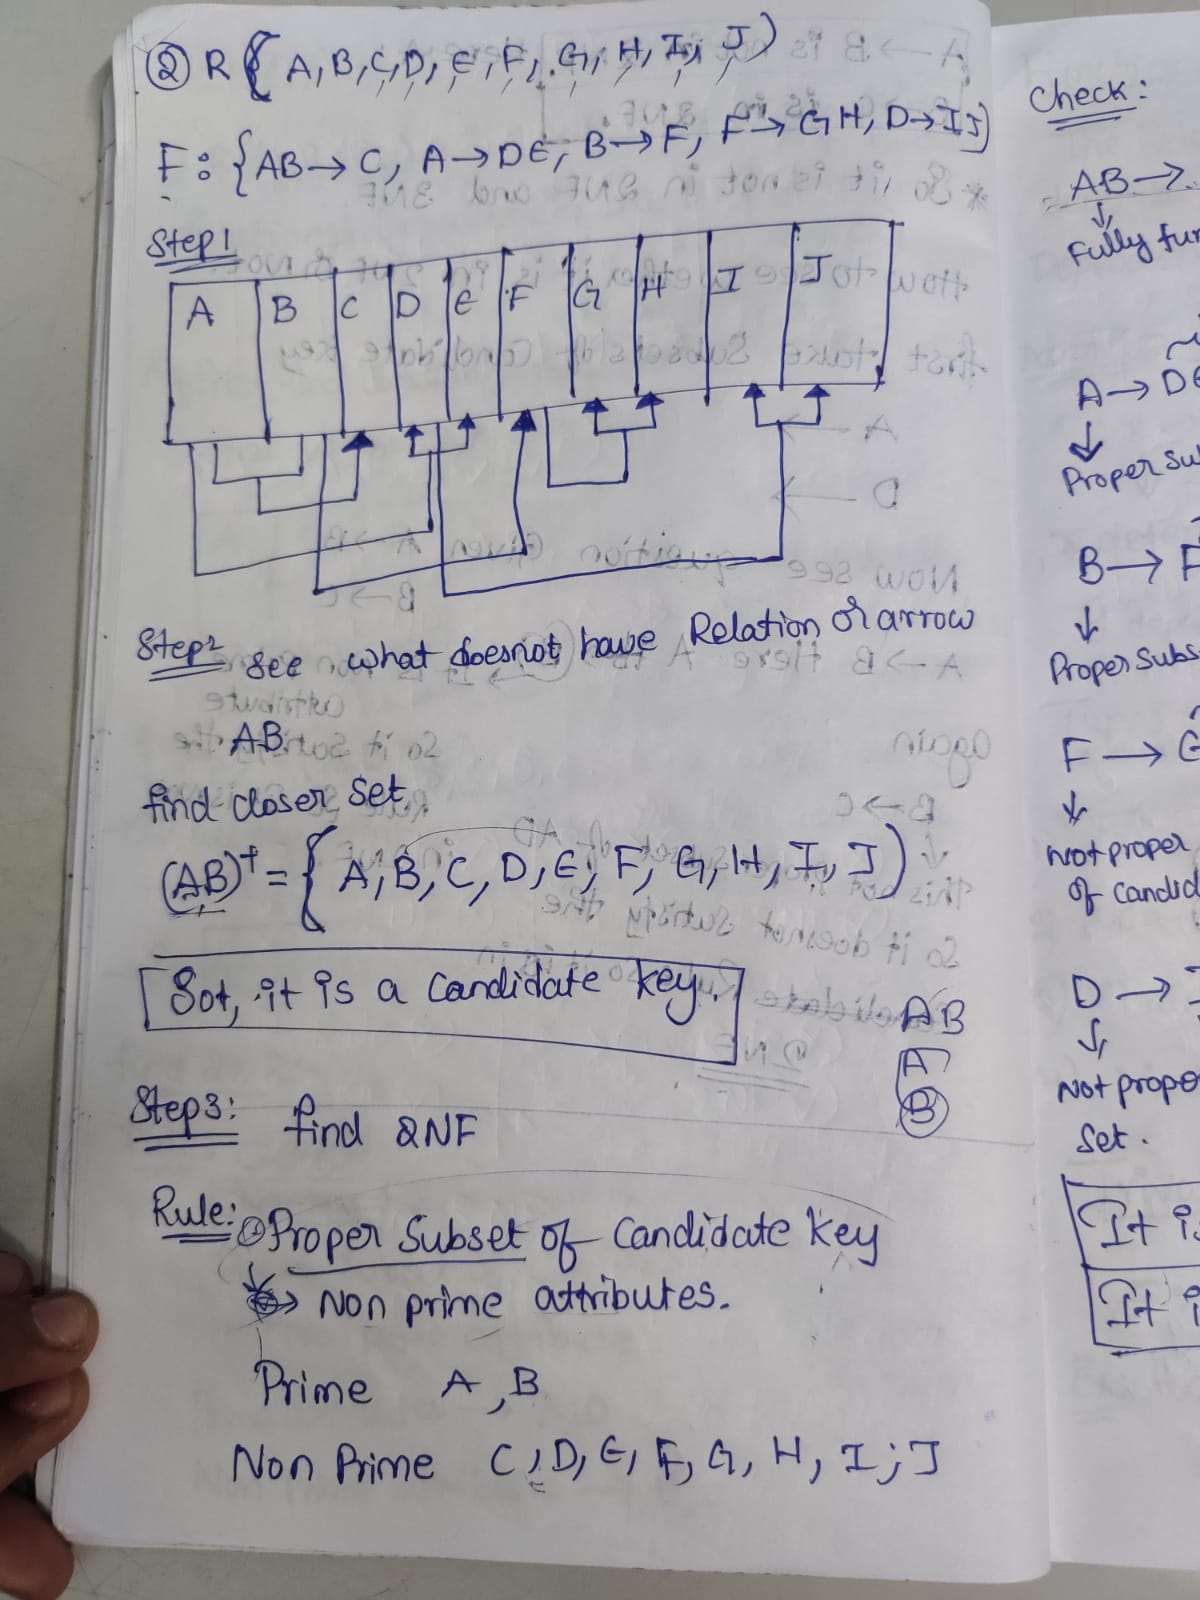 ② R { A, B, C, D, E, F, G, H, I, J )
F : { AB → C, A → DE, B → F, F → GH, D → IJ }
Step 1
A B C D E F G H I J
Step 2 See what doesnot have Relation or arrow
AB
find closer set
(AB)⁺ = { A, B, C, D, E, F, G, H, I, J )
Sot, it is a candidate key.
AB
A
B
Step 3: find 2NF
Rule: ① Proper Subset of Candidate Key
→ Non prime attributes.
Prime A, B
Non Prime C, D, E, F, G, H, I, J
Check:
AB →
↓
Fully fun
A → DE
↓
Proper su
B → F
↓
Proper subs
F → G
↓
Not proper
of candid
D →
↓
Not prope
Set.
It is
It i